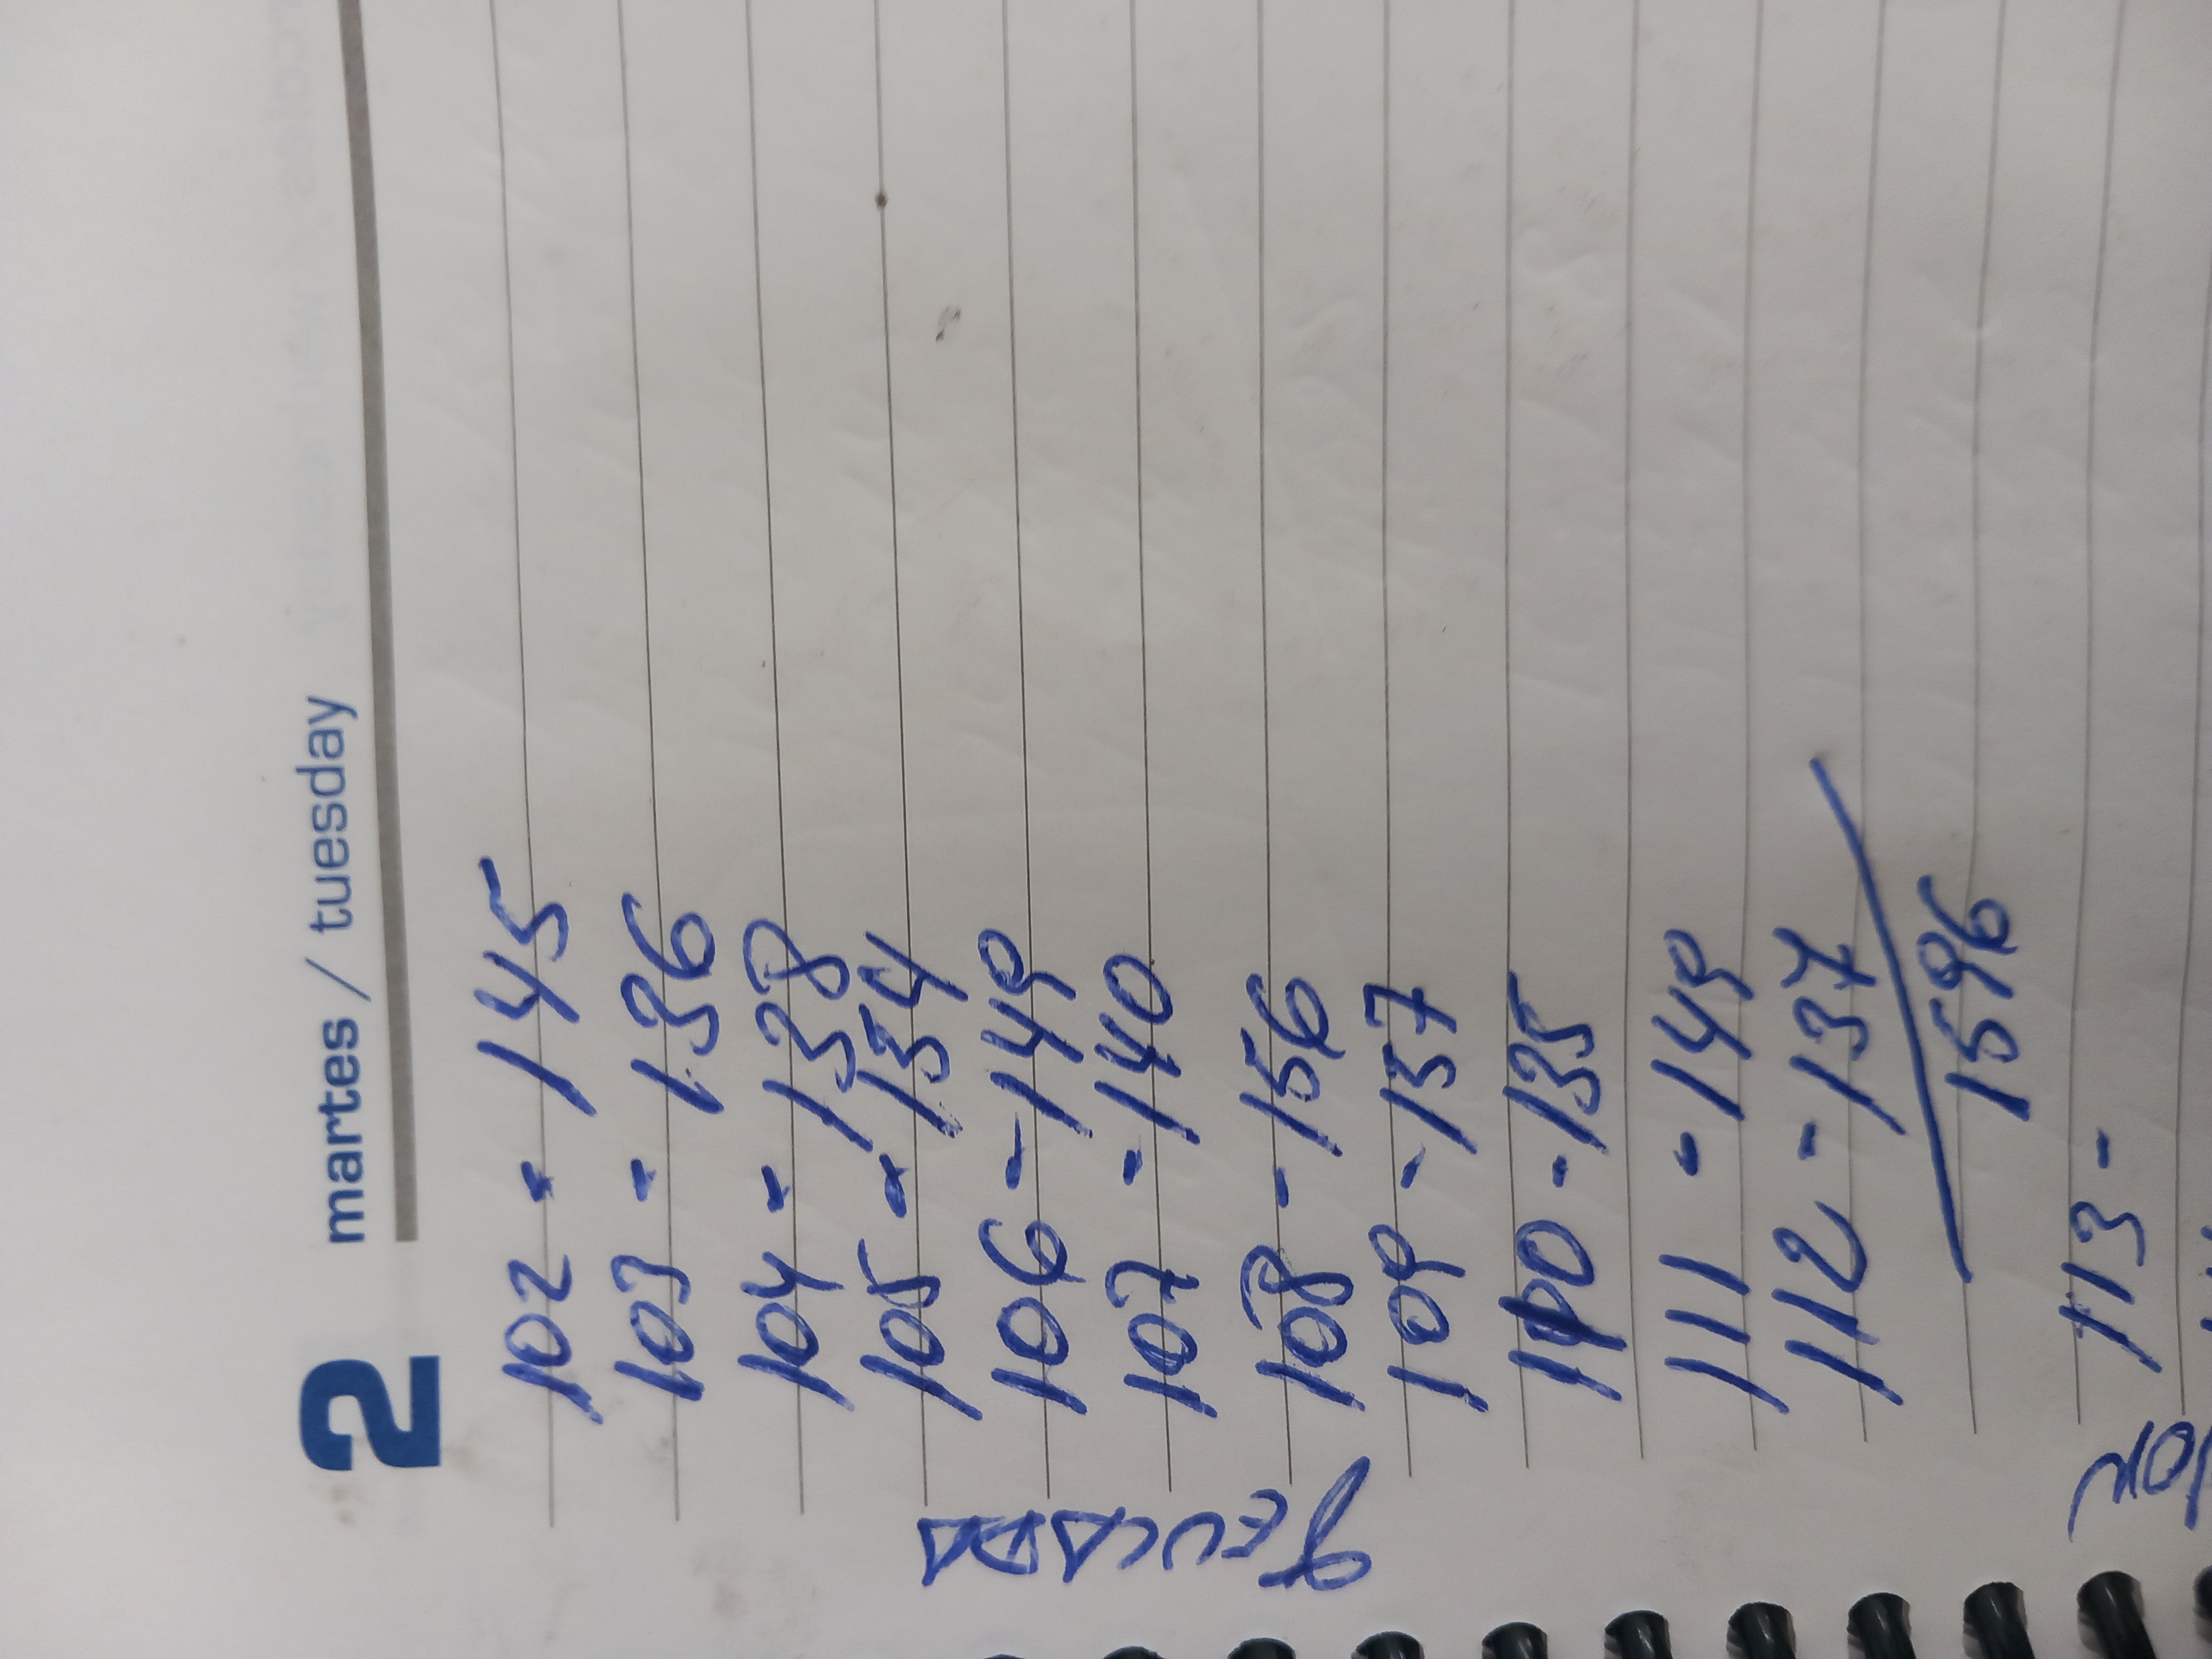 2 martes / tuesday
102 - 145
103 - 136
104 - 138
105 - 154
106 - 149
107 - 140
108 - 156
109 - 157
110 - 135
111 - 149
112 - 137
1596
113 -